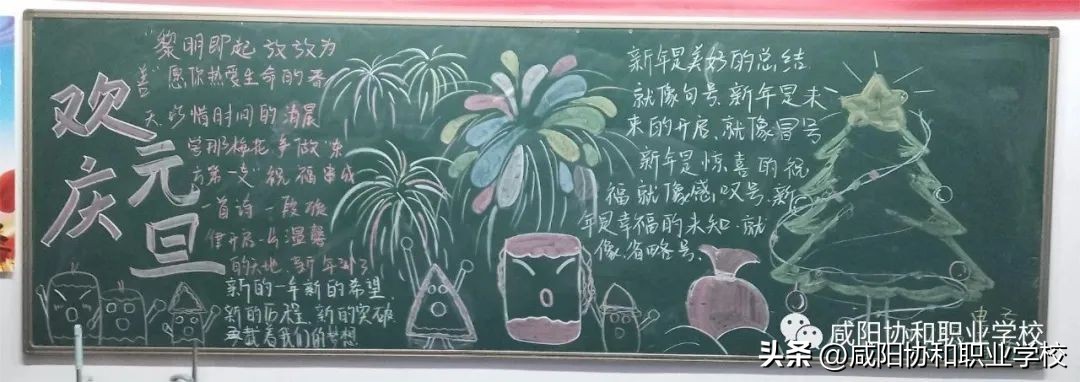 欢庆元旦
"黎明即起 孜孜为
善"愿你热爱生命的春
天,珍惜时间的清晨
学那梅花,争做"东
方第一支"祝福串成
一首诗一段旋
律开启一片温馨
的天地,新年到了
新的一年新的希望
新的历程、新的突破
载着我们的梦想
新年是美好的总结
就像句号、新年是未
来的开启、就像冒号
新年是惊喜的祝
福就像感叹号、新
年是幸福的未知、就
像省略号、
电子
咸阳协和职业学校
头条@咸阳协和职业学校